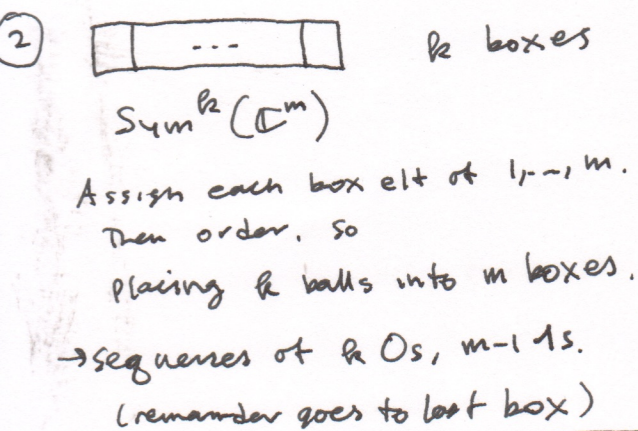 2
--- k boxes
Sym^k (ℂ^m)
Assign each box elt of 1,--, m.
Then order. so
placing k balls into m boxes.
→ sequences of k 0s, m-1 1s.
(remainder goes to last box)